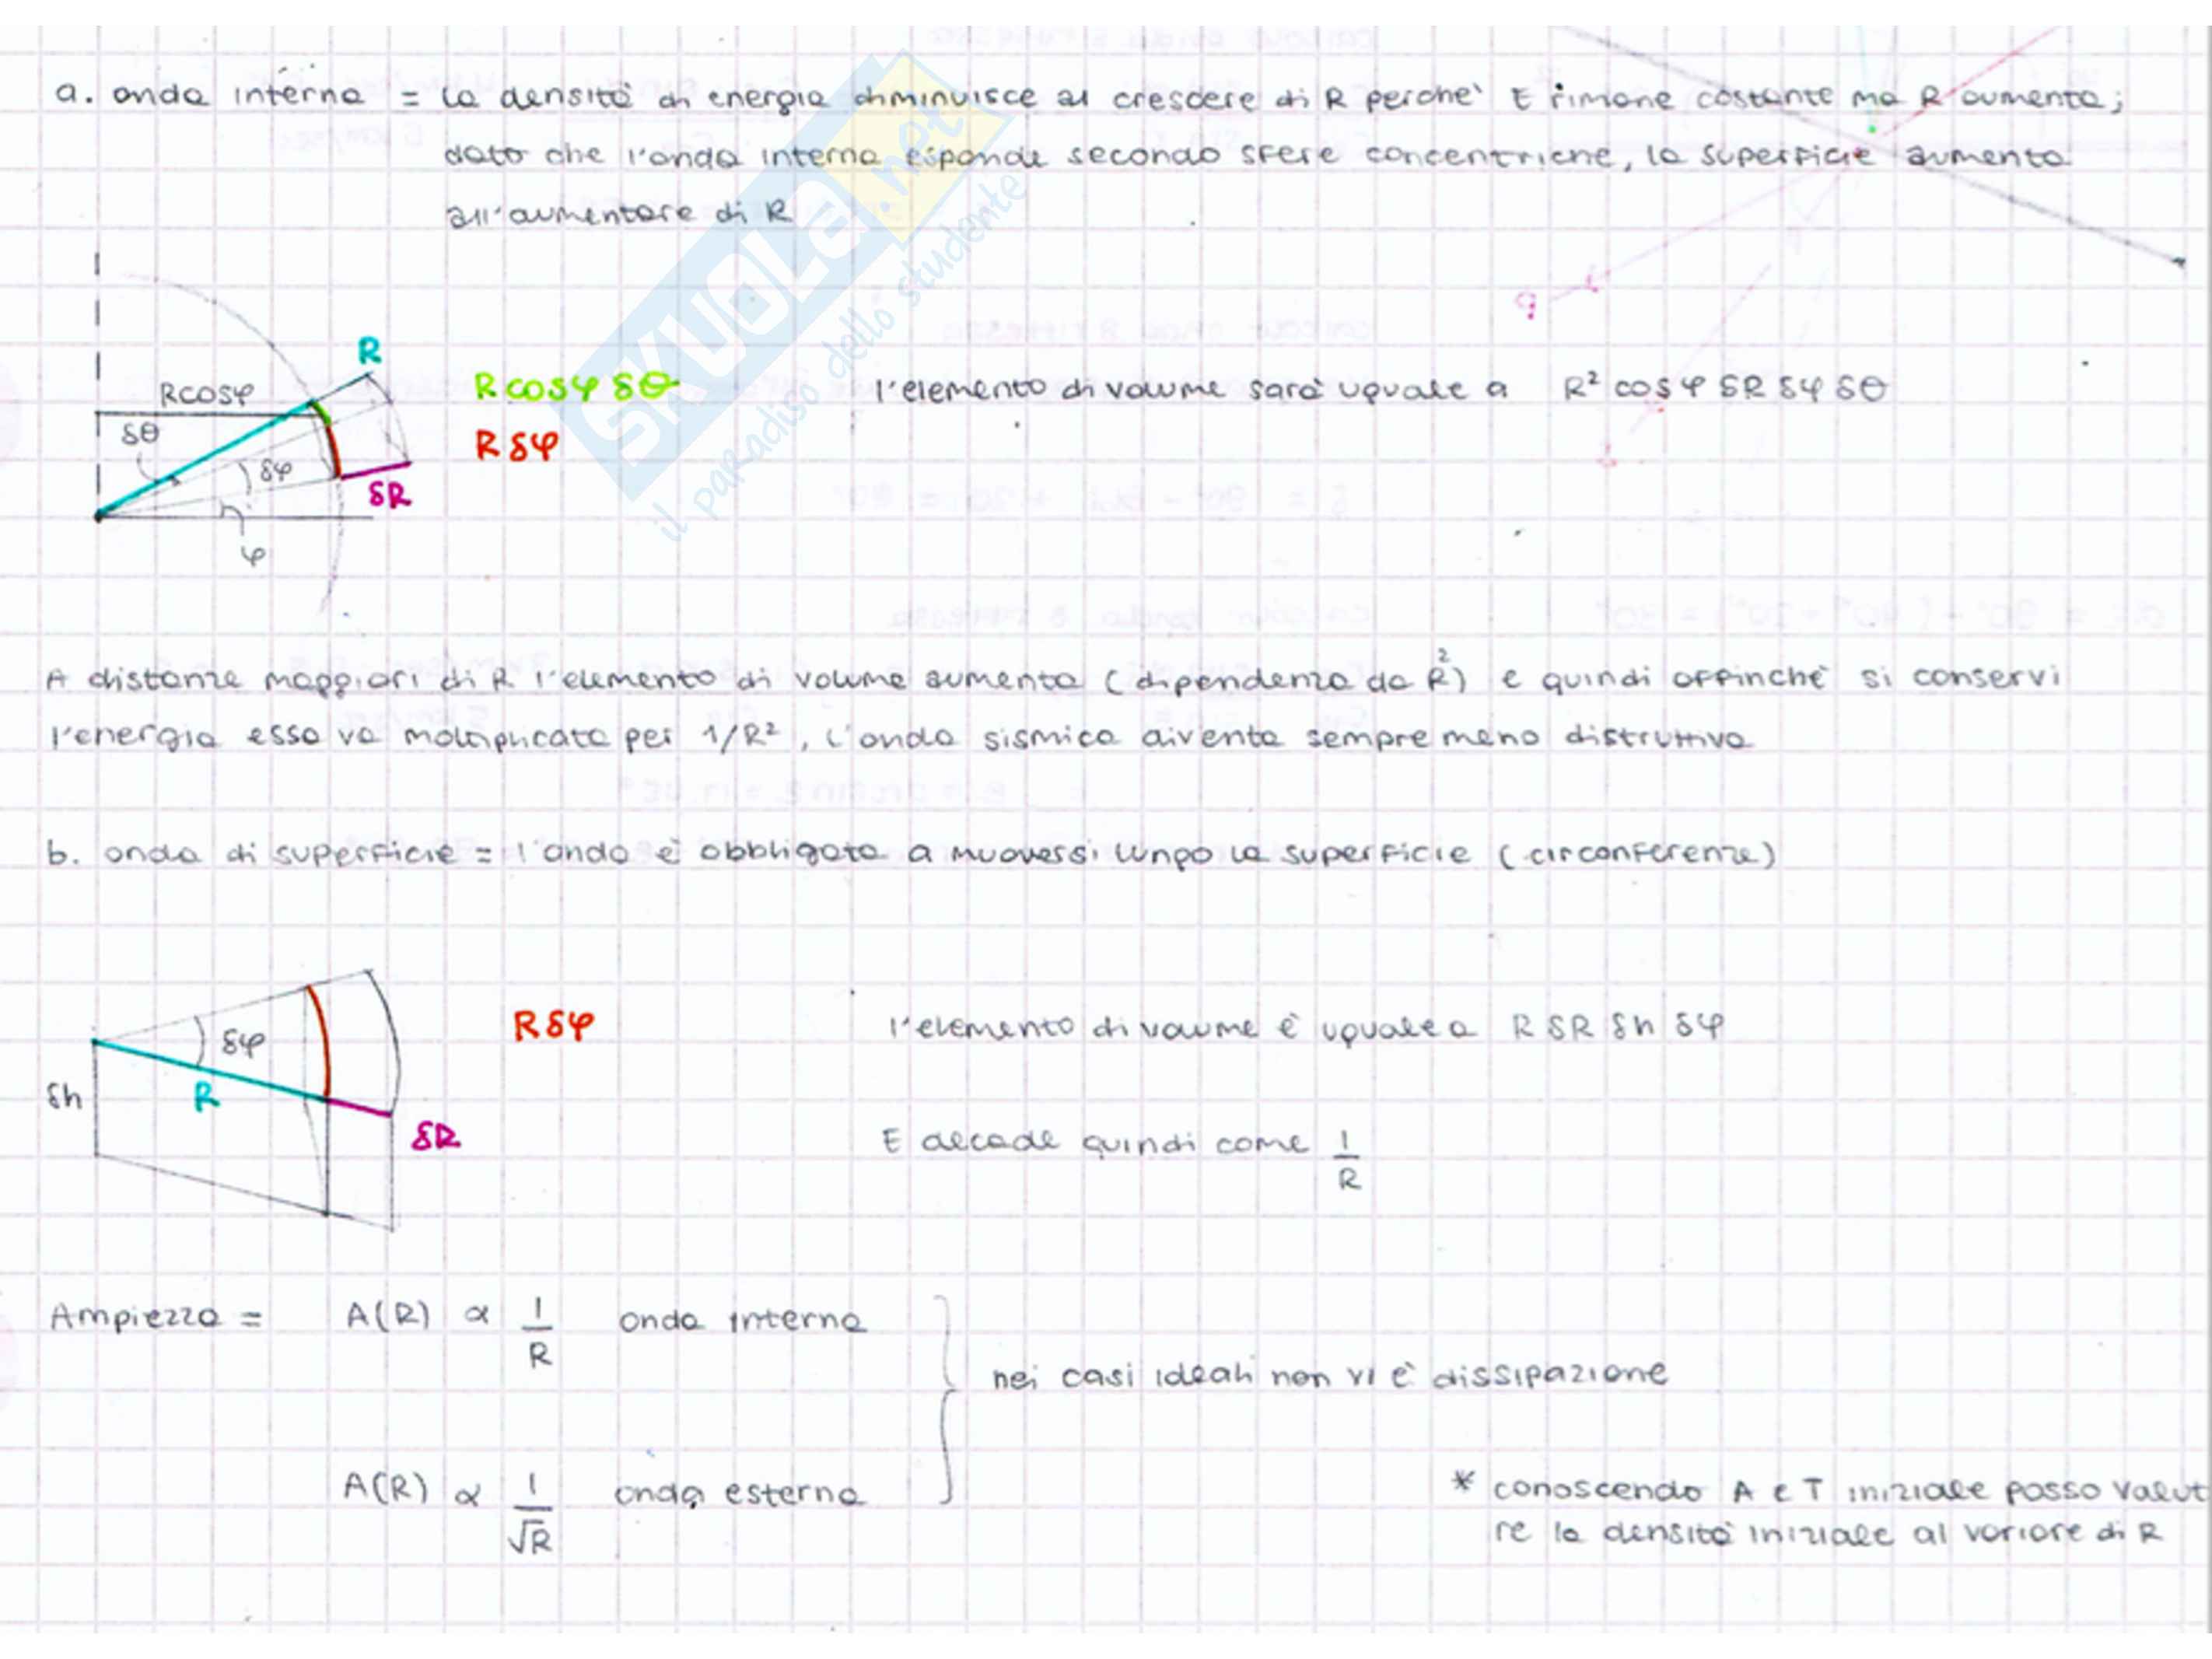 a. onda interna = la densità di energia diminuisce al crescere di R perchè E rimane costante ma R aumenta;
dato che l'onda interna espande secondo sfere concentriche, la superficie aumenta
all'aumentare di R
SKUOLA.net
il paradiso dello studente
R
Rcosφ
δθ
δφ
δR
φ
Rcosφ δθ
R δφ
l'elemento di volume sarà uguale a R² cosφ δR δφ δθ
A distanze maggiori di R l'elemento di volume aumenta (dipendenza da R²) e quindi affinchè si conservi
l'energia essa va moltiplicata per 1/R², l'onda sismica diventa sempre meno distruttiva
b. onda di superficie = l'onda è obbligata a muoversi lungo la superficie (circonferenze)
δφ
R
δh
δR
R δφ
l'elemento di volume è uguale a R δR δh δφ
E decade quindi come 1/R
Ampiezza = A(R) ∝ 1/R onda interna
nei casi ideali non vi è dissipazione
A(R) ∝ 1/√R onda esterna
* conoscendo A e T iniziale posso valut
re la densità iniziale al variare di R